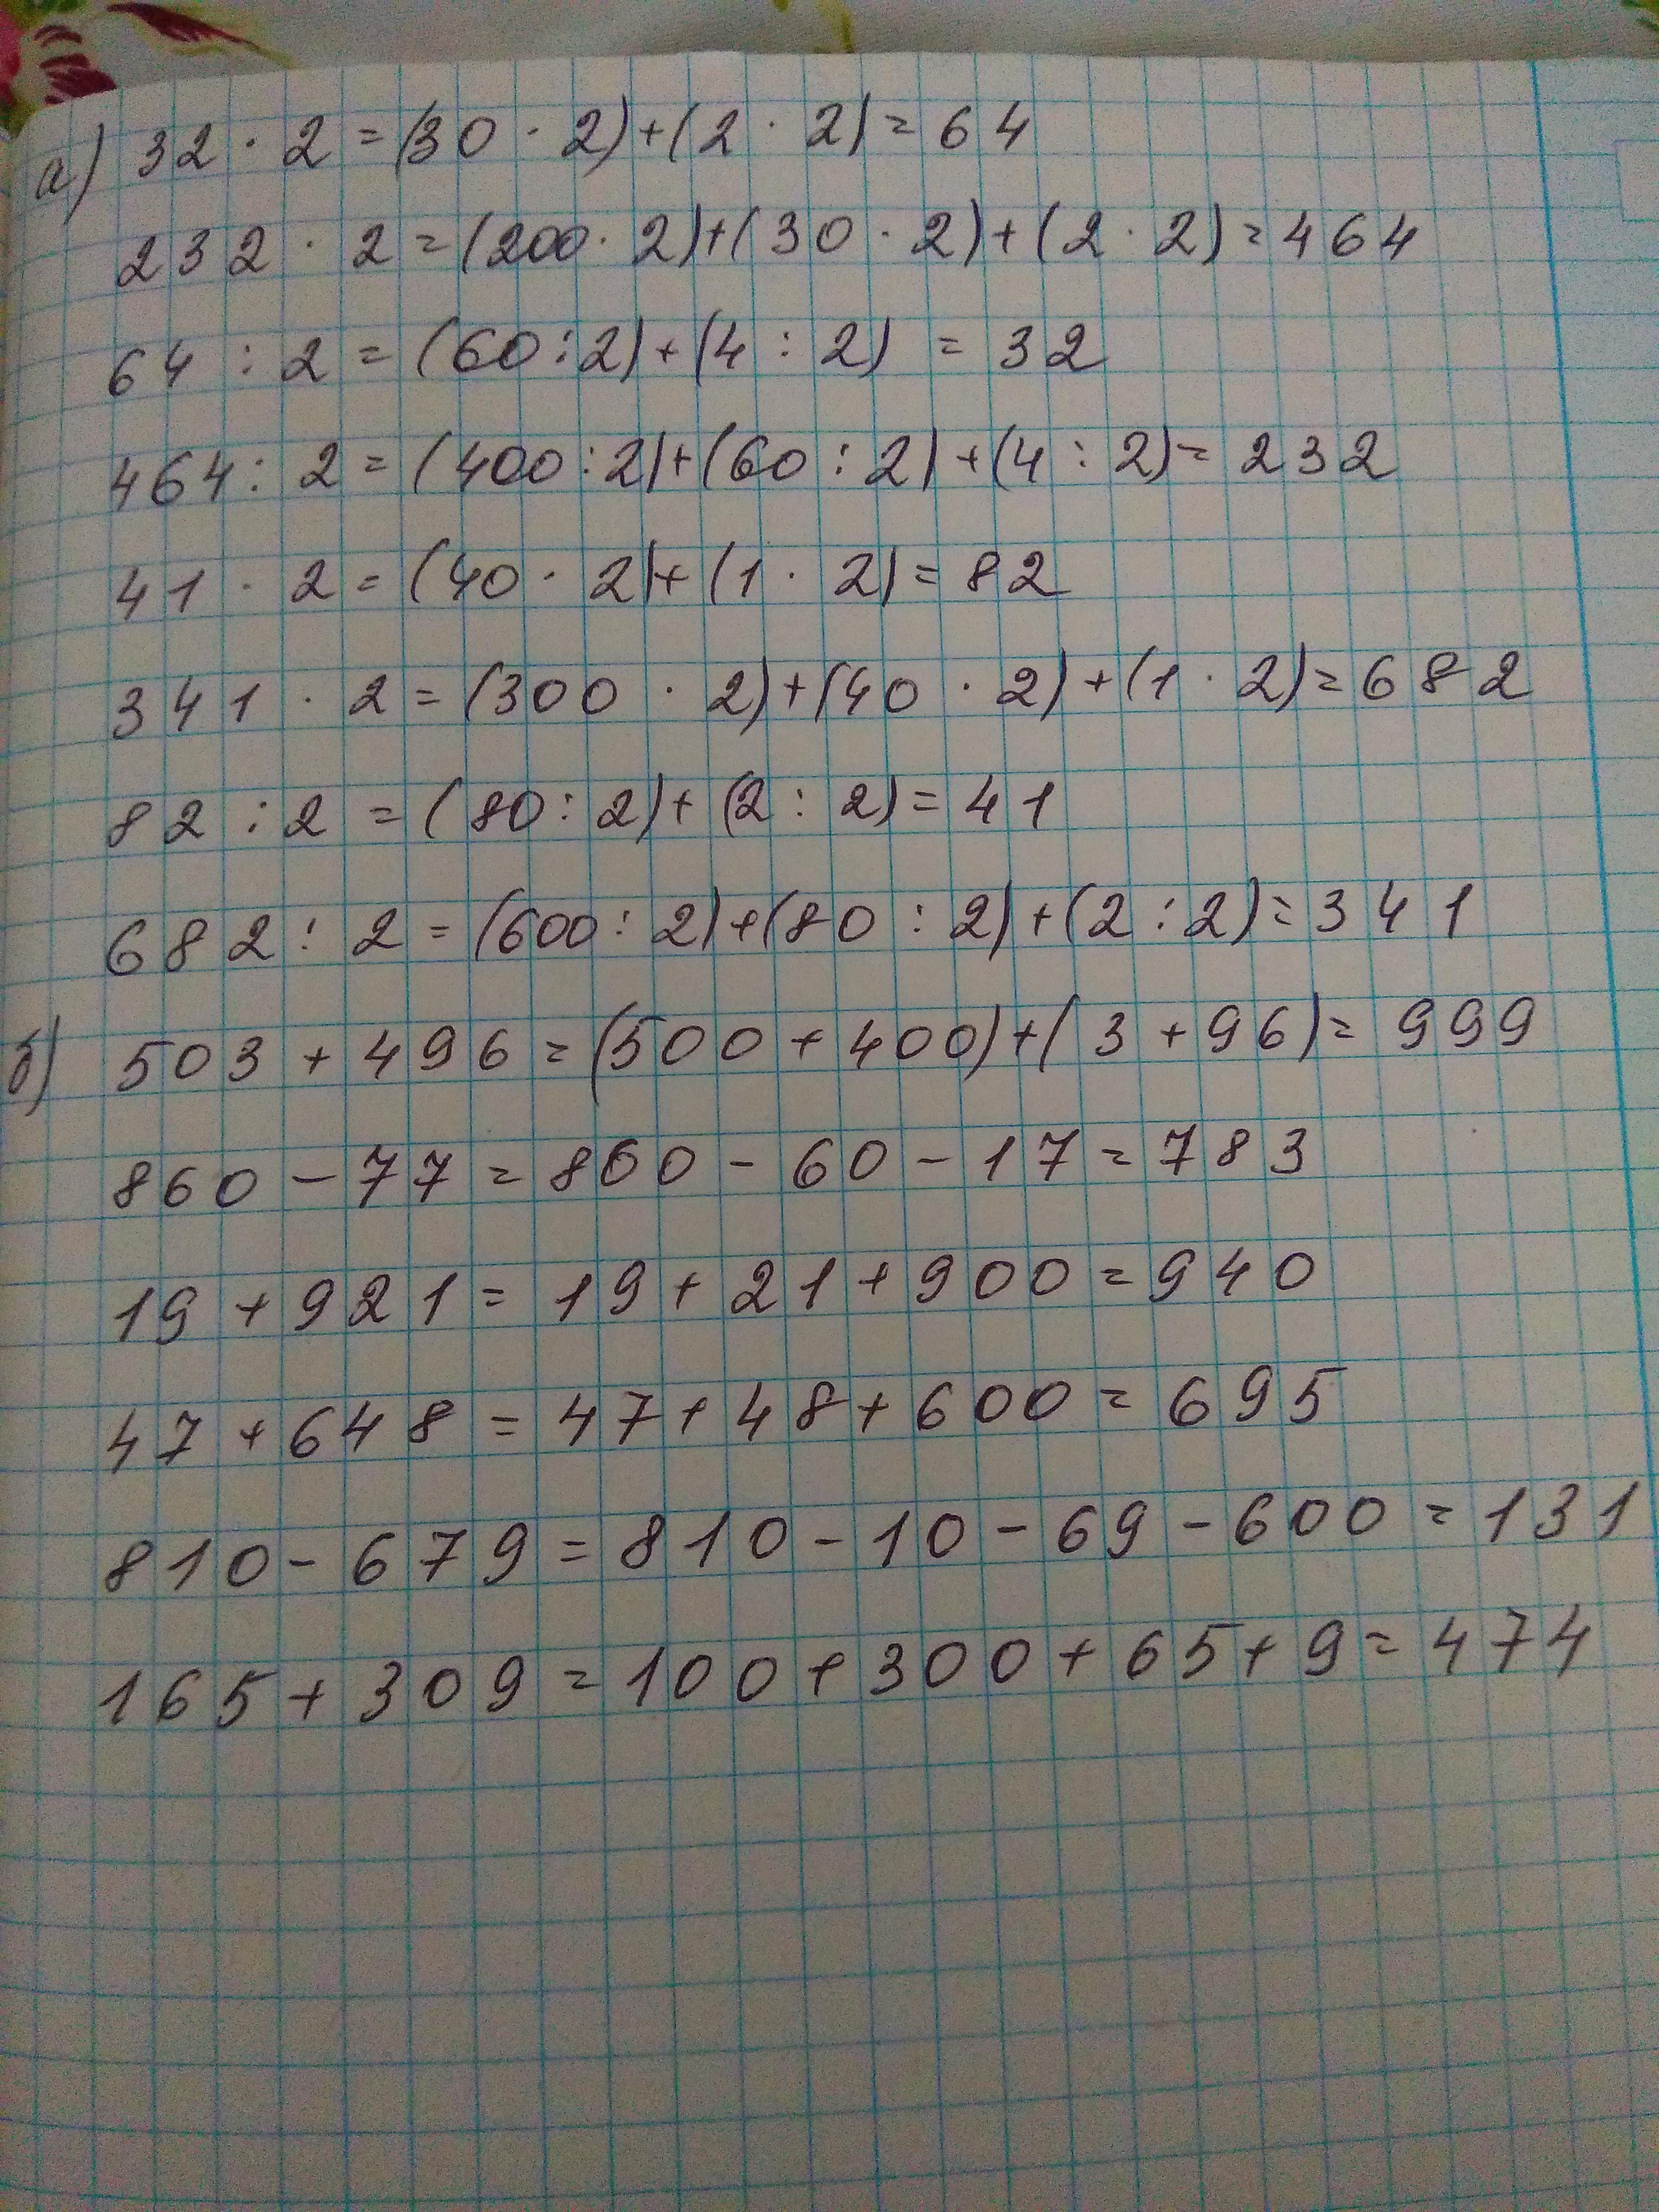 а) 32 · 2 = (30 · 2) + (2 · 2) = 64
232 · 2 = (200 · 2) + (30 · 2) + (2 · 2) = 464
64 : 2 = (60 : 2) + (4 : 2) = 32
464 : 2 = (400 : 2) + (60 : 2) + (4 : 2) = 232
41 · 2 = (40 · 2) + (1 · 2) = 82
341 · 2 = (300 · 2) + (40 · 2) + (1 · 2) = 682
82 : 2 = (80 : 2) + (2 : 2) = 41
682 : 2 = (600 : 2) + (80 : 2) + (2 : 2) = 341
б) 503 + 496 = (500 + 400) + (3 + 96) = 999
860 - 77 = 860 - 60 - 17 = 783
19 + 921 = 19 + 21 + 900 = 940
47 + 648 = 47 + 48 + 600 = 695
810 - 679 = 810 - 10 - 69 - 600 = 131
165 + 309 = 100 + 300 + 65 + 9 = 474